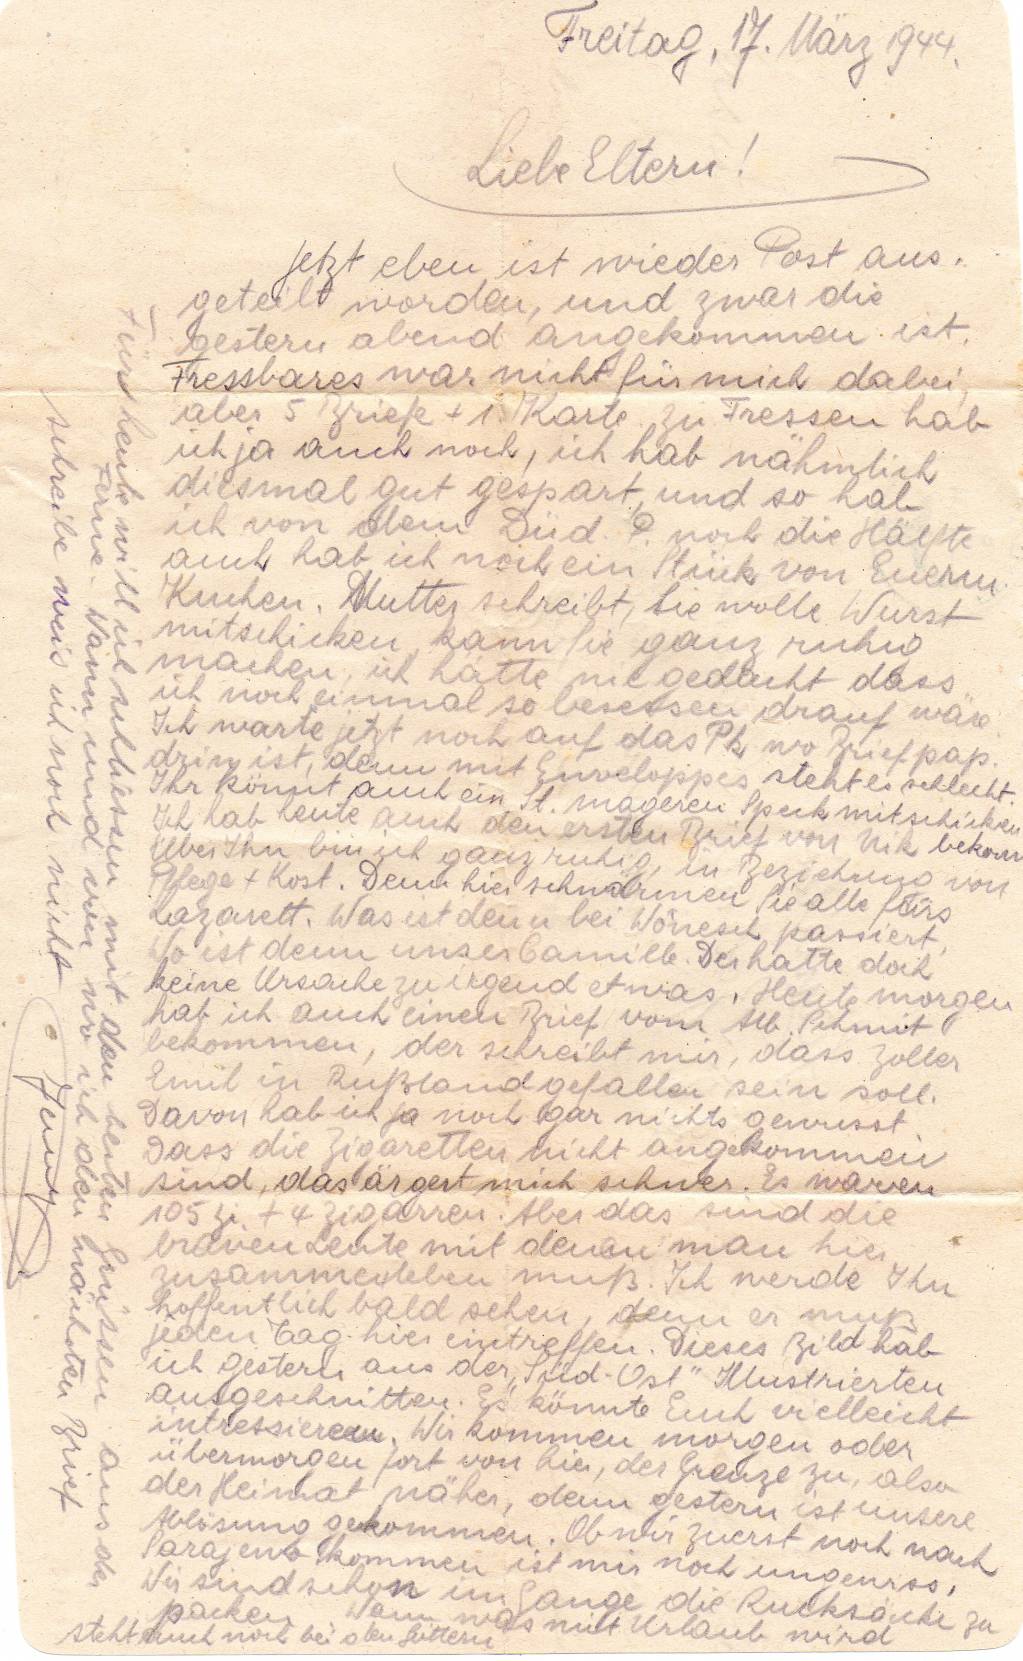 Freitag, 17. März 1944.
Liebe Eltern!
Jetzt eben ist wieder Post aus-
geteilt worden, und zwar die
gestern abend angekommen ist.
Fressbares war nicht für mich dabei,
aber 5 Briefe + 1 Karte. Zu Fressen hab
ich ja auch noch, ich hab nähmlich
diesmal gut gespart, und so hab
ich von dem Düd. P. noch die Hälfte
auch hab ich noch ein Stück von Euerm
Kuchen. Mutter schreibt, Sie wolle Wurst
mitschicken, kann Sie ganz ruhig
machen, ich hätte nie gedacht dass
ich noch einmal so besessen drauf wär.
Ich warte jetzt noch auf das Pk wo Briefpap.
drin ist, denn mit Enveloppes steht es schlecht.
Ihr könnt auch ein St. mageren Speck mitschicken
Ich hab heute auch den ersten Brief von Nik bekom
Über Ihn bin ich ganz ruhig, in Beziehung von
Pflege + Kost. Denn hier schwärmen Sie alle fürs
Lazarett. Was ist denn bei Wönesch passiert,
Wo ist denn unser Camille. Der hatte doch
keine Ursache zu irgend etwas. Heute morgen
hab ich auch einen Brief vom Alb. Schmit
bekommen, der schreibt mir, dass Zoller
Emil in Rußland gefallen sein soll.
Davon hab ich ja noch gar nichts gewusst.
Dass die Zigaretten nicht angekommen
sind, das ärgert mich schwer. Es waren
105 Zi. + 4 Zigarren. Aber das sind die
braven Leute mit denen man hier
zusammenleben muß. Ich werde Ihn
hoffentlich bald sehen, denn er muß
jeden Tag hier eintreffen. Dieses Bild hab
ich gestern aus der „Süd-Ost" Illustrierten
ausgeschnitten. Es könnte Euch vielleicht
intressieren. Wir kommen morgen oder
übermorgen fort von hier, der Grenze zu, also
der Heimat näher, denn gestern ist unsere
Ablösung gekommen. Ob wir zuerst noch nach
Sarajewo kommen ist mir noch ungewiss.
Wir sind schon im Gange die Rucksäcke zu
packen. Wann was mit Urlaub wird
steht auch noch bei den Göttern
Fürs heute will ich schliessen mit den besten Grüssen aus der
Ferne. Wann und von wo ich den nächsten Brief
schreibe weis ich noch nicht